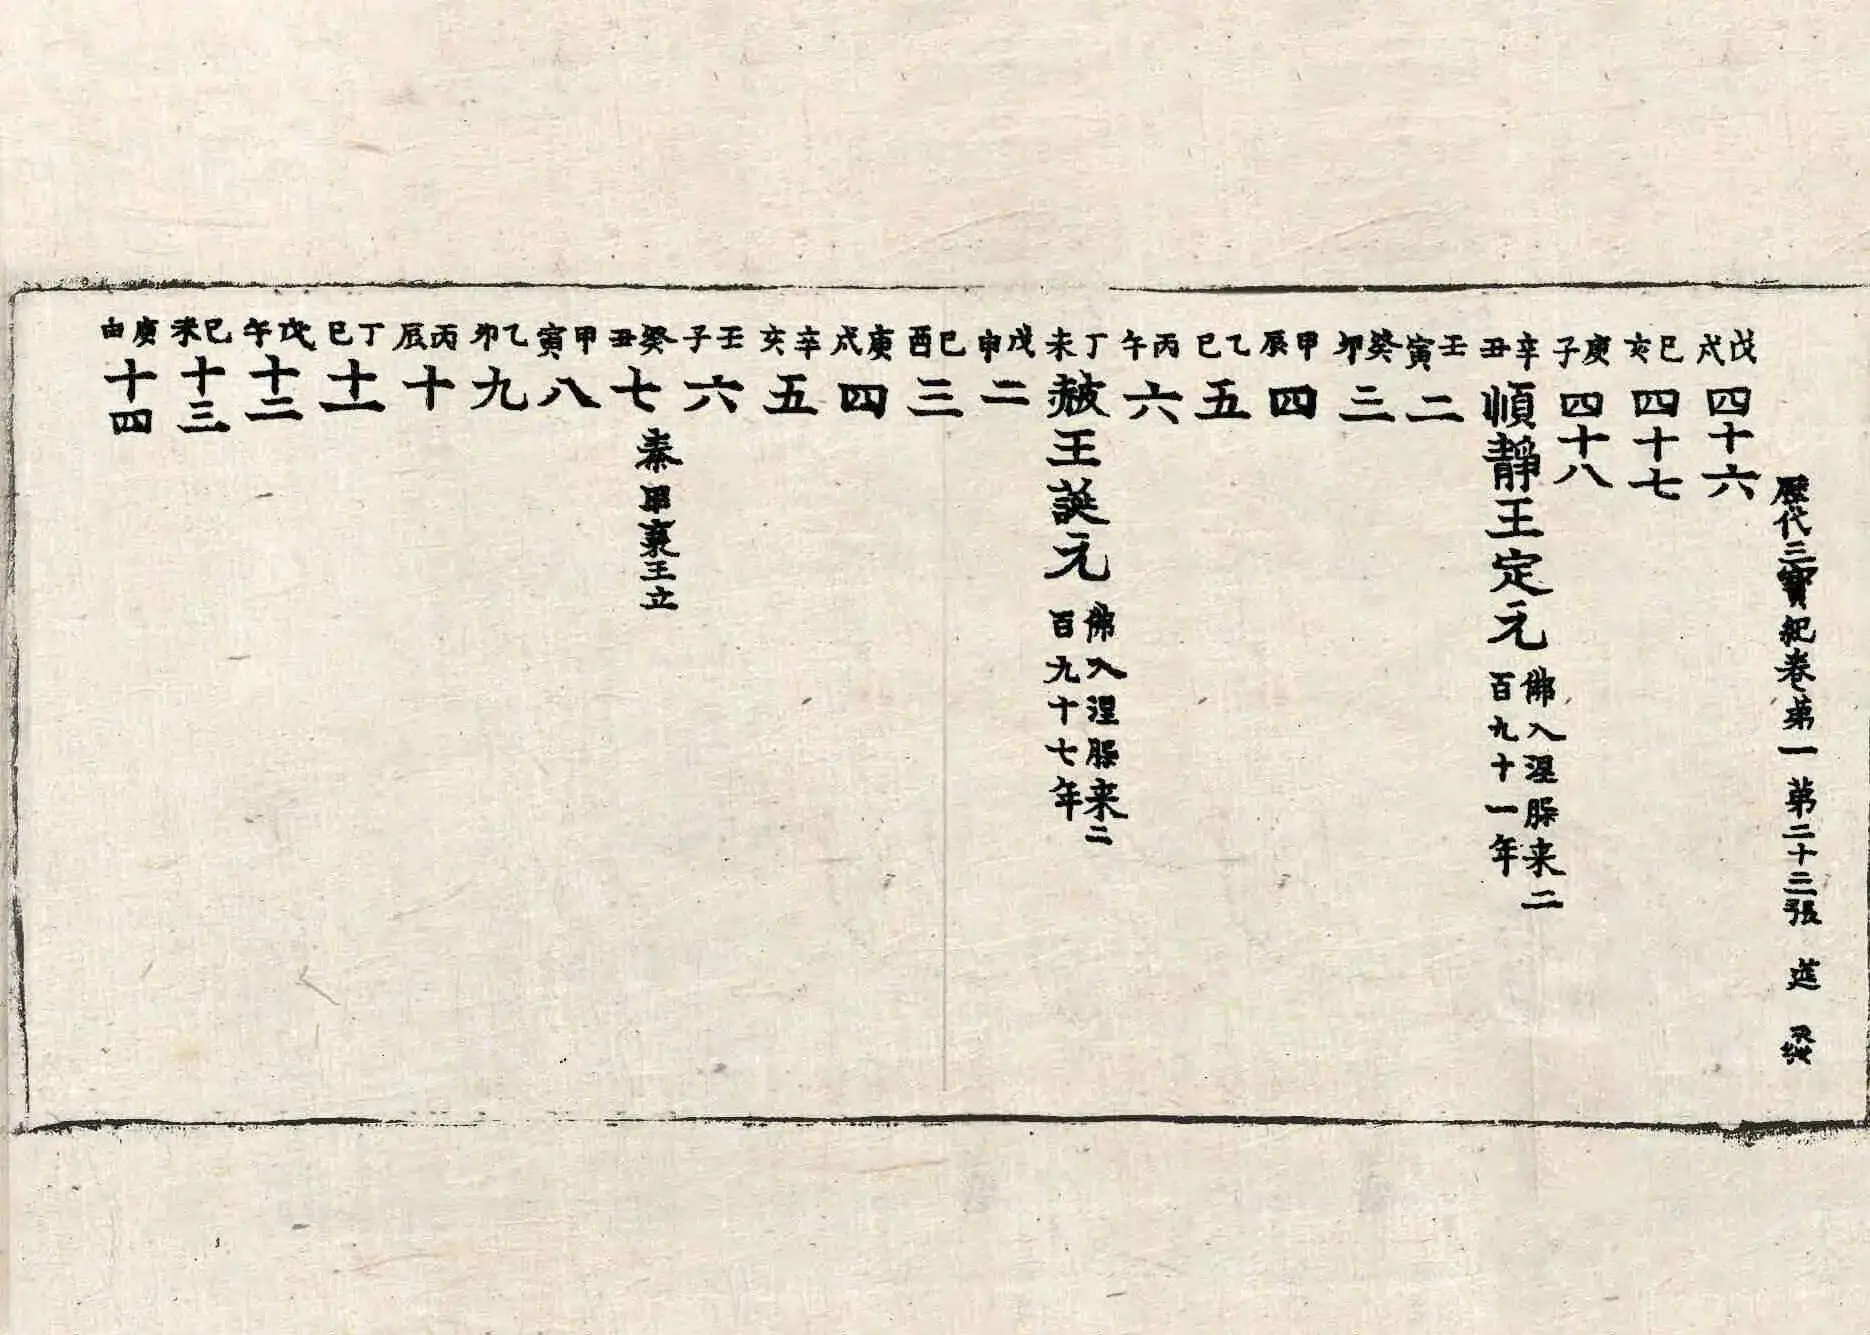 歷代三寶紀卷第一 第二十三張
戊戌 四十六
己亥 四十七
庚子 四十八
辛丑 順靜王定元 佛入涅槃来二百九十一年
壬寅 二
癸卯 三
甲辰 四
乙巳 五
丙午 六
丁未 赧王誕元 佛入涅槃来二百九十七年
戊申 二
己酉 三
庚戌 四
辛亥 五
壬子 六
癸丑 七 秦昭襄王立
甲寅 八
乙卯 九
丙辰 十
丁巳 十一
戊午 十二
己未 十三
庚申 十四